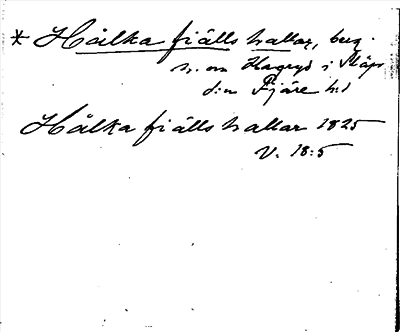 * Hålka fjälls hallar, berg
n. om Hagryd i Släps
s:n Fjäre hd
Hålka fjälls hallar 1825
V. 18:5